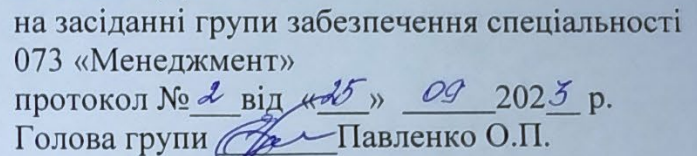 на засіданні групи забезпечення спеціальності
073 «Менеджмент»
протокол № 2 від «25» 09 2023 р.
Голова групи Павленко О.П.